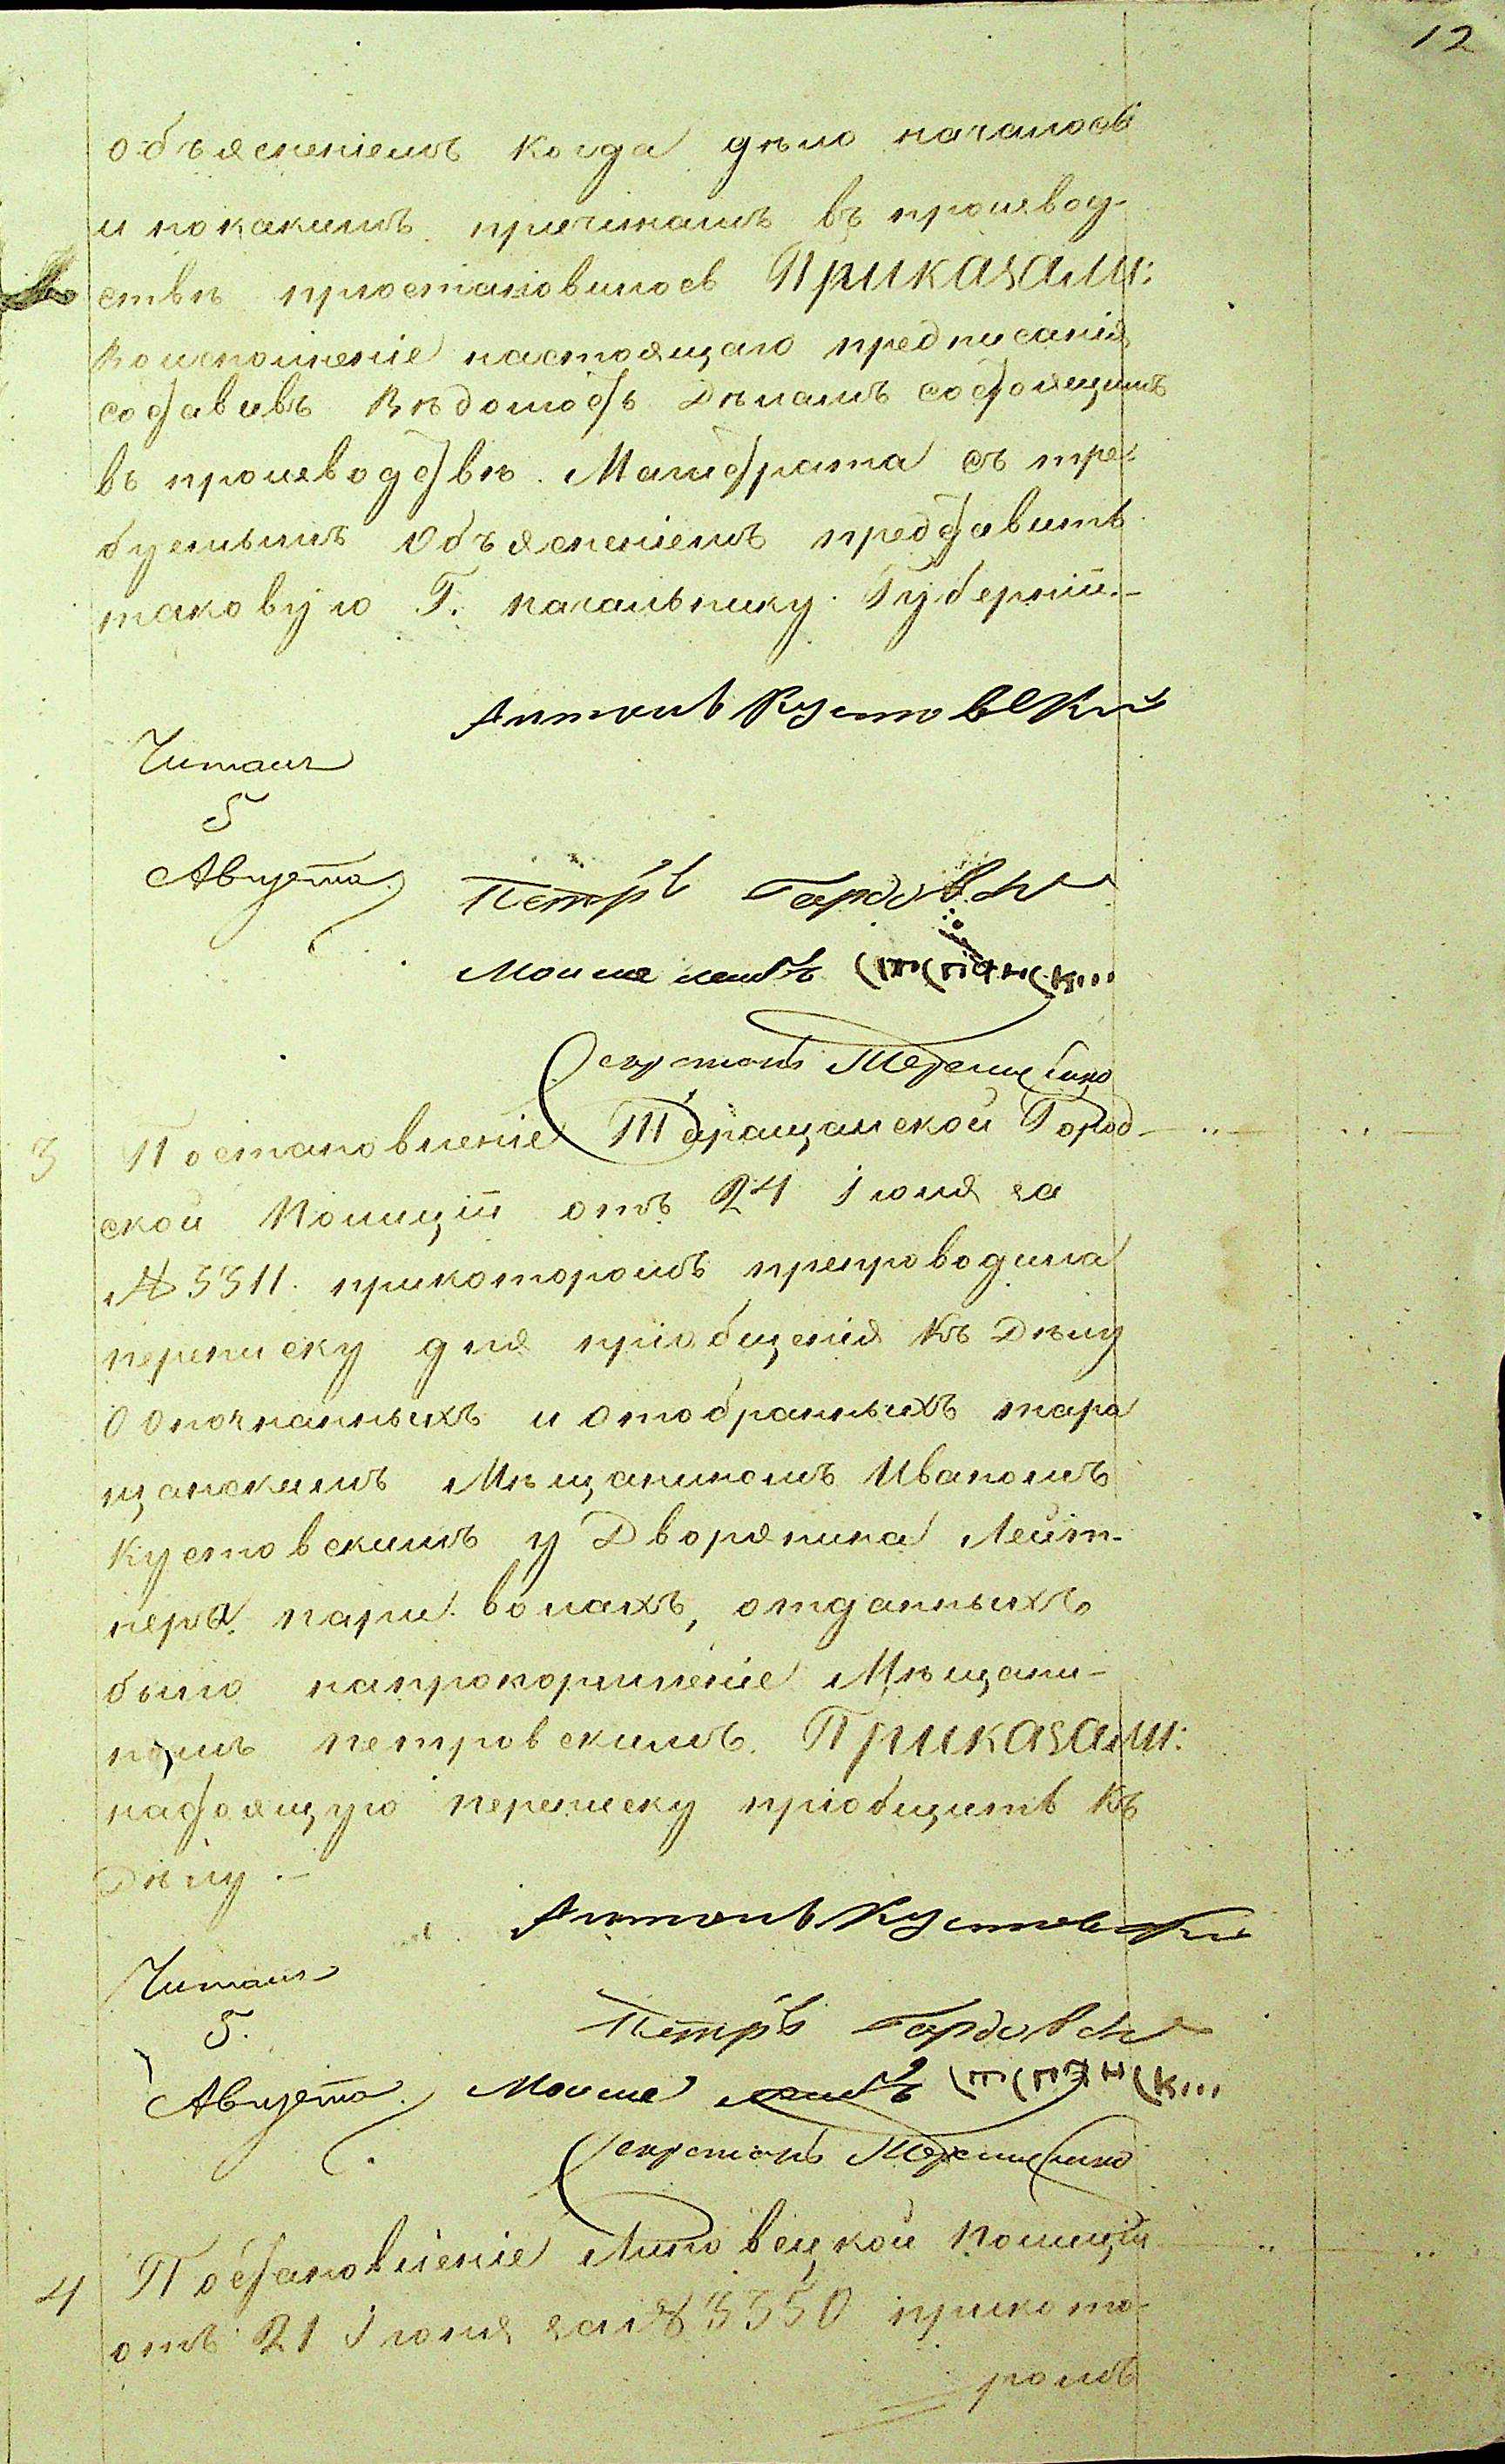 12
объясненіемъ когда дѣло началось
и покакимъ причинамъ въ производ-
ствѣ пріостановилось Приказали:
Воисполненіе настоящаго предписанія
составивъ Вѣдомость Дѣламъ состоящимъ
въ производствѣ Магистрата съ тре-
буемымъ Объясненіемъ представить
таковую Г. начальнику Губерніи.—
Антонъ Кустовскій
Читалъ
5
Августа
Петръ
Мошие леибъ
Секретарь
3 Постановленіе Таращанской Город-
ской Полиціи отъ 24 Іюля за
№ 3311. прикоторомъ препроводила
переписку для пріобщенія Къ Дѣлу
О опочнанныхъ и отобранныхъ тара
щанскимъ Мѣщаниномъ Иваномъ
Кустовскимъ у Дворянина Лейт-
нера пари волахъ, отданныхъ
было напрокормленіе Мѣщани-
номъ петровскимъ. Приказали:
настоящую переписку пріобщить Къ
Дѣлу.—
Антонъ Кустовскій
Читалъ
5.
Августа
Петръ
Мошие леибъ
Секретарь
4 Постановленіе Липовецкой Полиціи
отъ 21 Іюня за № 3350 прикото-
ромъ